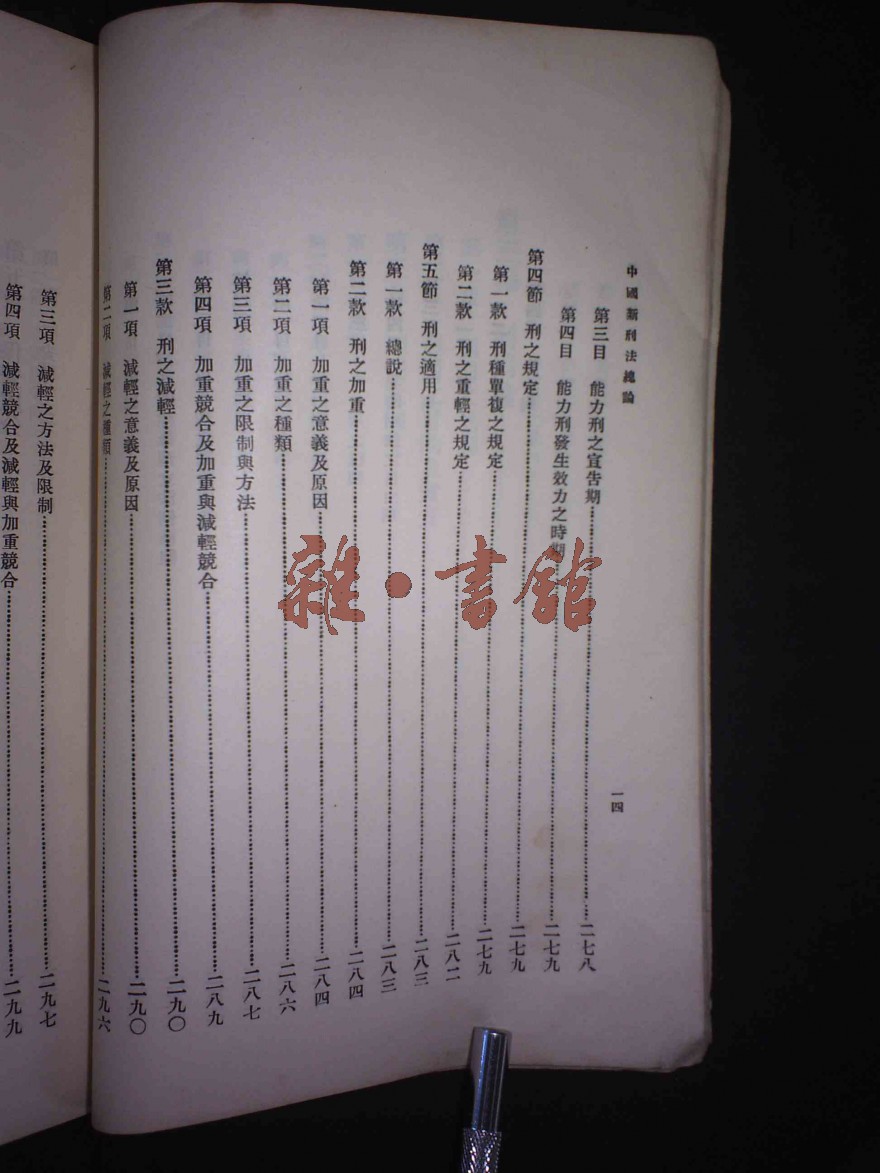 中國新刑法總論
第三目 能力刑之宣告期……二七八
第四目 能力刑發生效力之時期……二七九
第四節 刑之規定……二七九
第一款 刑種單複之規定……二七九
第二款 刑之重輕之規定……二八二
第五節 刑之適用……二八三
第一款 總說……二八三
第二款 刑之加重……二八四
第一項 加重之意義及原因……二八四
第二項 加重之種類……二八六
第三項 加重之限制與方法……二八七
第四項 加重競合及加重與減輕競合……二八九
第三款 刑之減輕……二九〇
第一項 減輕之意義及原因……二九〇
第二項 減輕之種類……二九六
第三項 減輕之方法及限制……二九七
第四項 減輕競合及減輕與加重競合……二九九
一四
雜·書館